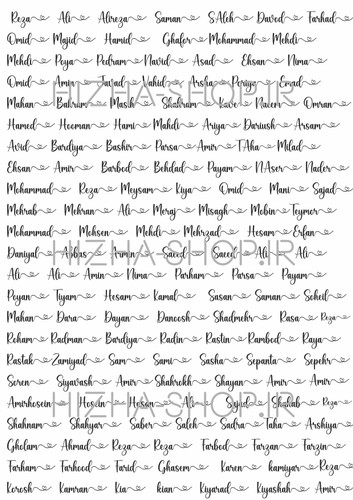 Reza Ali Alireza Saman S.Aleh Davod Farhad
Omid Majid Hamid Ghafor Mohammad Mehdi
Mehdi Poya Pedram Navid Asad Ehsan Nima
Omid Amin Javad Vahid Arsha Periya Emad
HIZHASHOP.IR
Mahan Bahram Masih Shahram Kave Naeem Omran
Hamed Hooman Hami Mahdi Ariya Dariush Arsam
Avid Bardiya Bashir Parsa Amir TAha Milad
Ehsan Amir Barbod Behdad Payam NAser Nader
Mohammad Reza Meysam Kiya Omid Mani Sajad
Mehrab Mehran Ali Meraj Misagh Mobin Teymor
Mohammad Mohsen Mehdi Mehrzad Hesam Erfan
Daniyal Abbas Armin Saeed Saeed Ali Ali
HIZHASHOP.IR
Ali Ali Amin Nima Parham Parsa Payam
Peyan Tiyam Hesam Kamal Sasan Saman Soheil
Mahan Dara Dayan Danoosh Shadmehr Rasa Reza
Roham Radman Bardiya Radin Rastin Rambod Raya
Rastak Zamiyad Sam Sami Sasha Sepanta Sepehr
Soren Siyavash Amir Shahrokh Shayan Amir Amir
Amirhosein Hosein Hessan Ali Seyed Shahab Reza
HIZHASHOP.IR
Shahnam Shahyar Saber Saleh Sadra Taha Arshiya
Gholam Ahmad Reza Reza Farbod Farzan Farzin
Farham Farhood Farid Ghasem Karen kamiyar Reza
Korosh Kamran Kia kian Kiyarad Kiyashah Amir